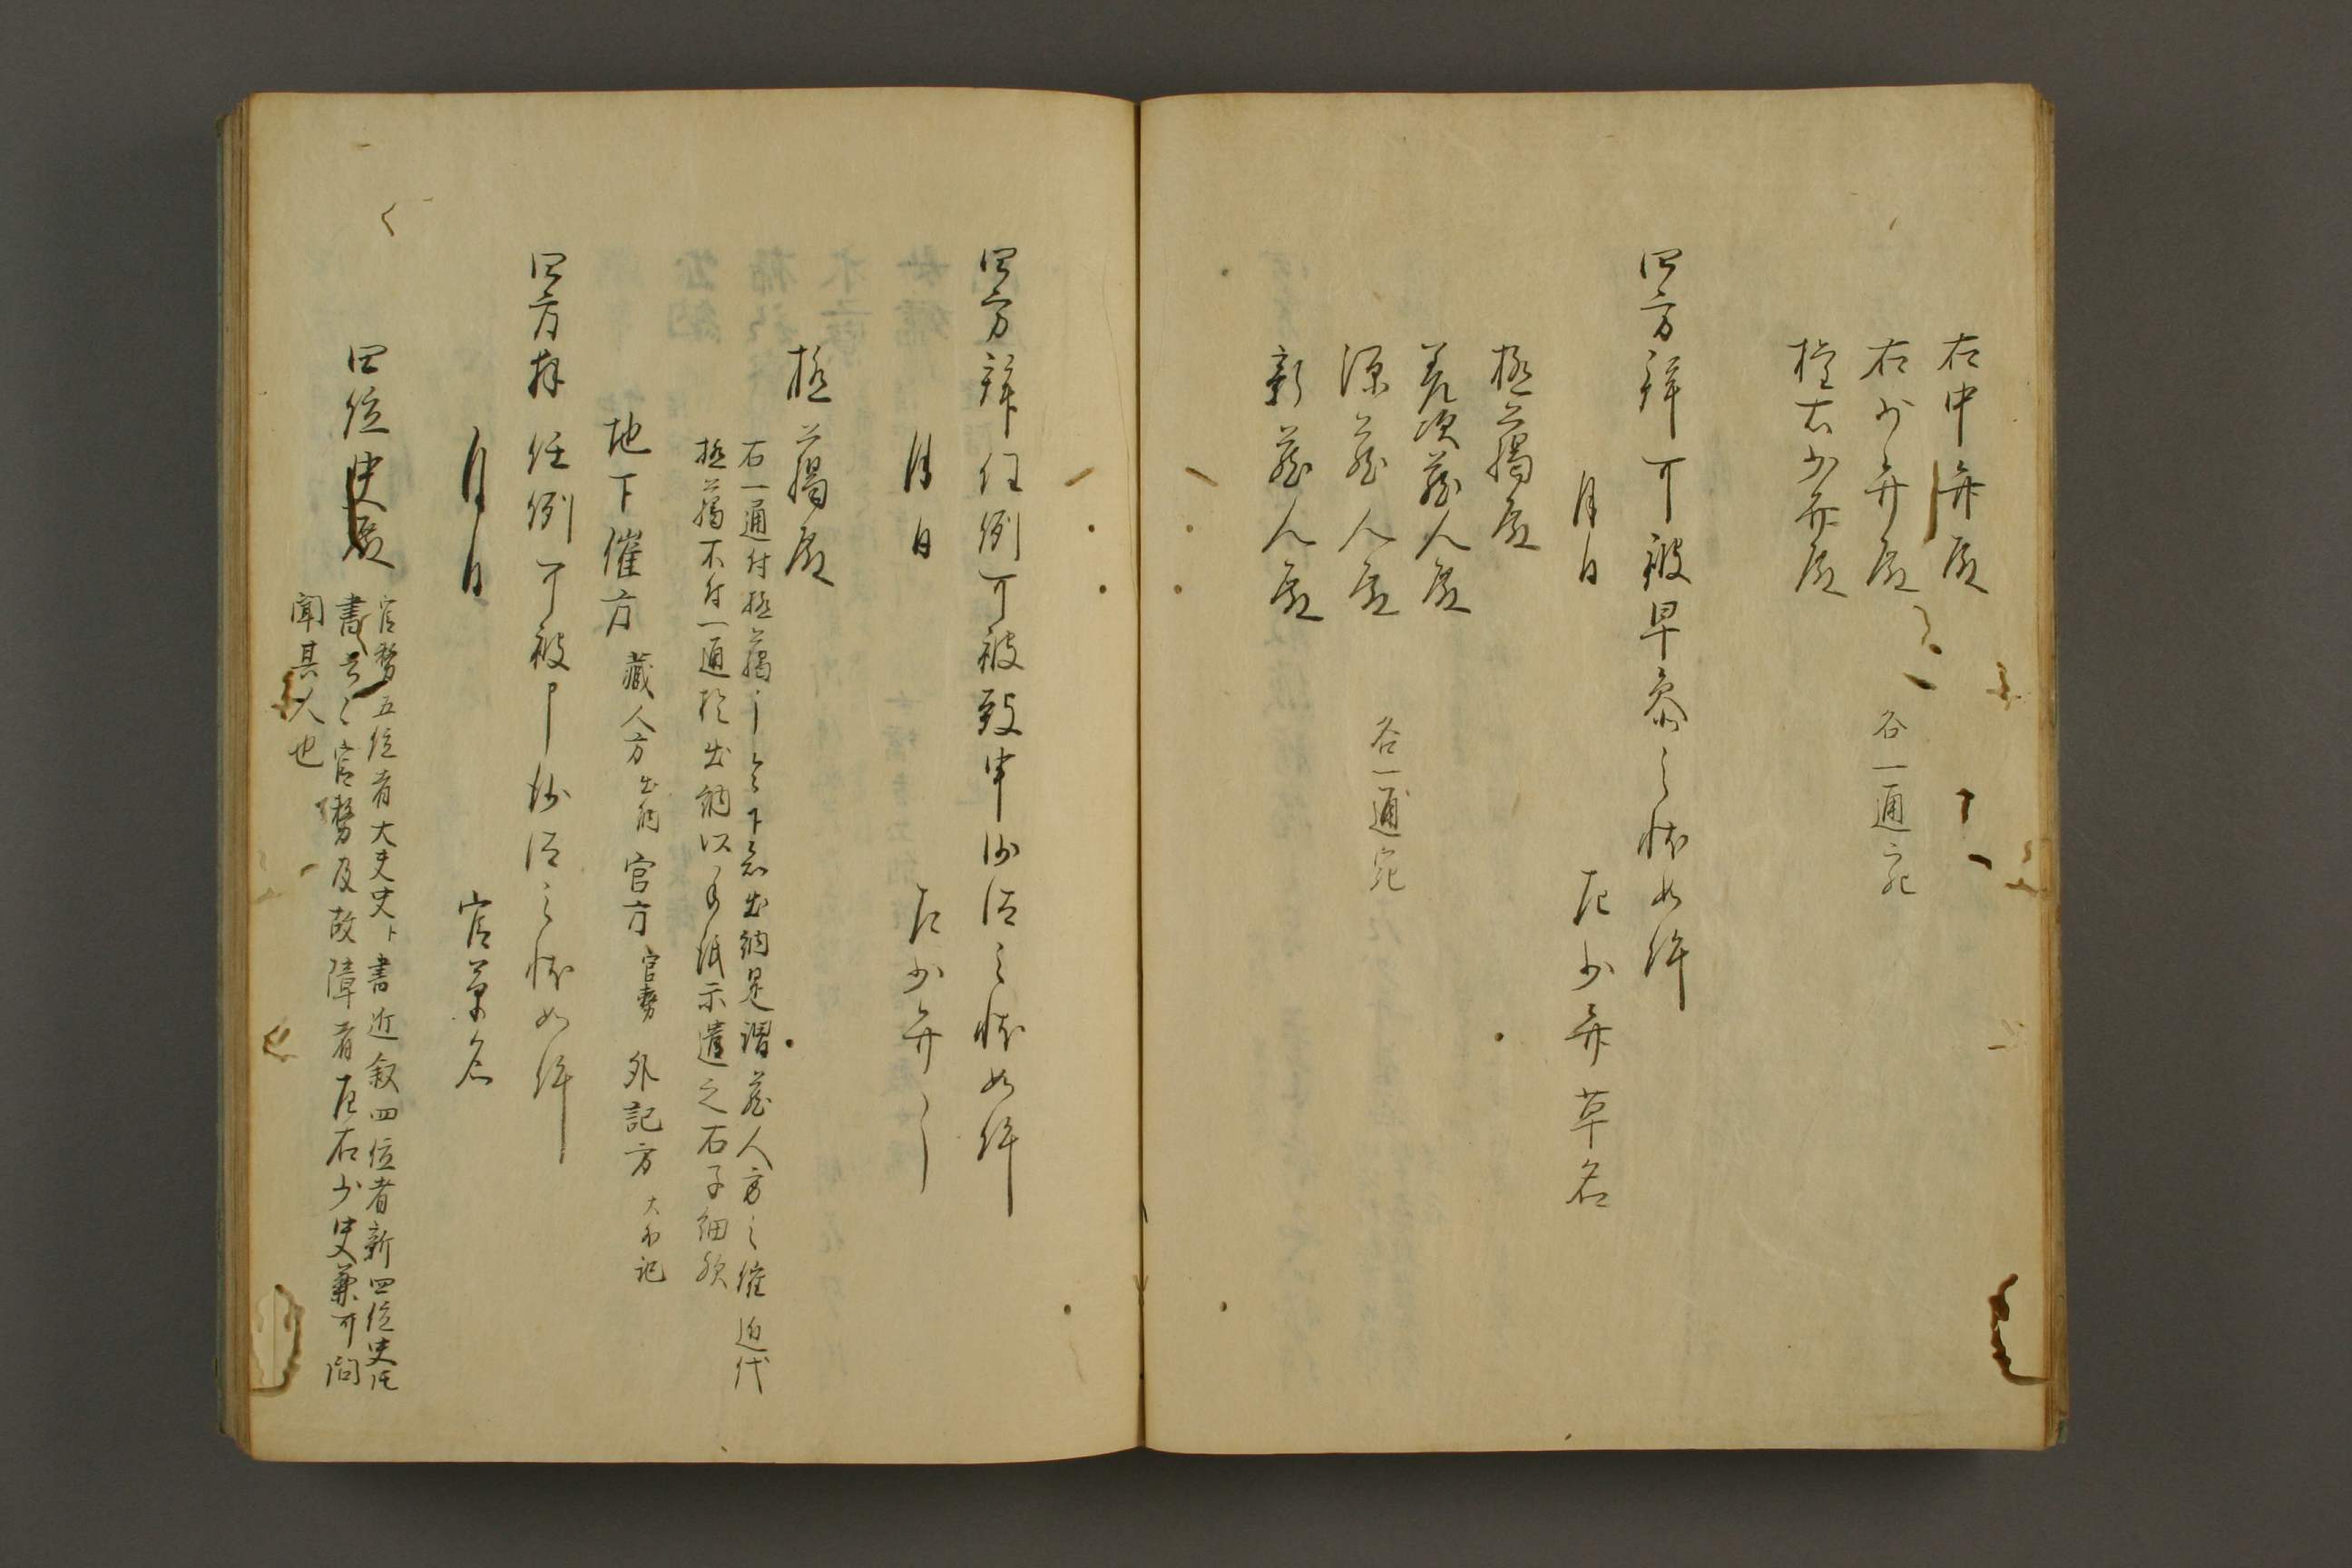 右中弁殿
右少弁殿
権右少弁殿
各一通宛
四方拝可被早参之状如件
月日
左少弁草名
極﨟殿
差次蔵人殿
源蔵人殿
新蔵人殿
各一通宛
四方拝任例可被致申沙汰之状如件
月日
左少弁
極﨟殿
右一通付極﨟 下知出納是謂蔵人方之催近代
極﨟不付一通於出納以手紙示遣之右子細殊
地下催方 蔵人方出納 官方官務 外記方大外記
四方拝任例可被申沙汰之状如件
月日
官草名
四位史殿
官務五位者大夫史ト書近叙四位者新四位史ト
書 官務及故障者左右少史兼可問
聞其人也